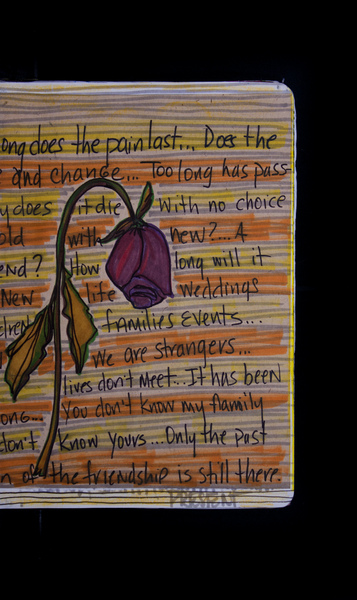 ong does the pain last... Does the
and change... Too long has pass
y does it die with no choice
old with new?... A
end? How long will it
New life weddings
dren families events...
We are strangers...
lives don't meet... It has been
ong... You don't know my family
don't know yours... Only the past
n of the friendship is still there.
PRESENT